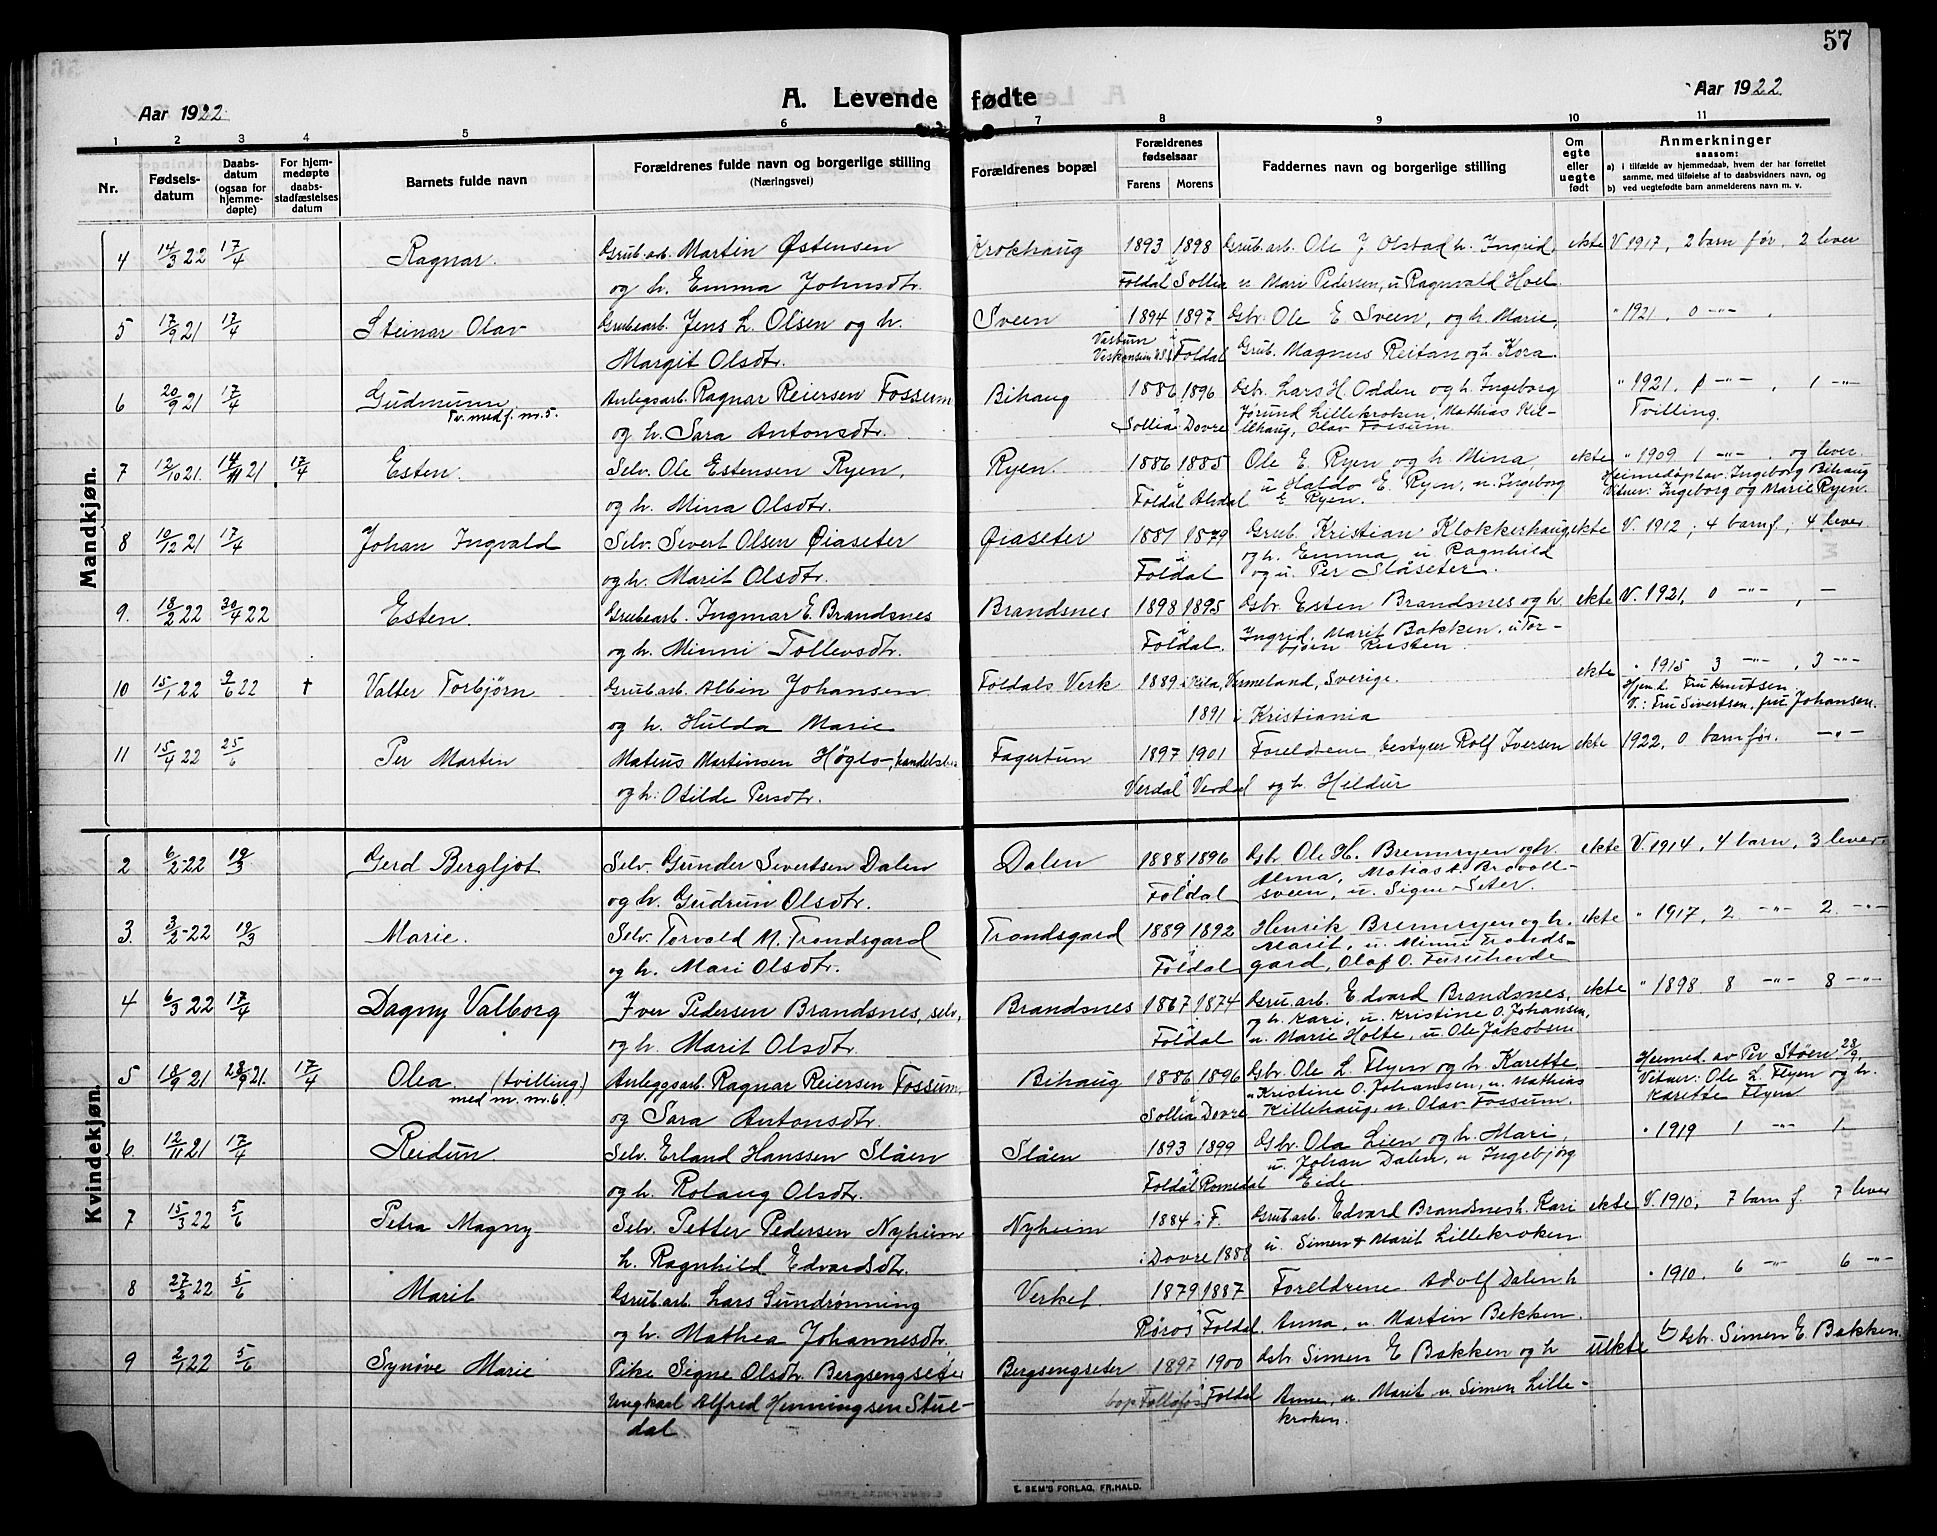 57
A. Levende fødte
Aar 1922
Aar 1922
1 2 3 4 5 6 7 8 9 10 11
Nr.
Fødsels-
datum
Daabs-
datum
(ogsaa for
hjemme-
døpte)
For hjem-
medøpte
daabs-
stadfæstelses
datum
Barnets fulde navn
Forældrenes fulde navn og borgerlige stilling
(Næringsvei)
Forældrenes bopæl
Forældrenes
fødselsaar
Farens Morens
Faddernes navn og borgerlige stilling
Om
egte
eller
uegte
født
Anmerkninger
saasom:
a) i tilfælde av hjemmedaab, hvem der har forrettet
samme, med tilføielse af to daabsvidners navn, og
b) ved uegtefødte barn anmelderens navn m. v.
Mandkjøn.
4 14/3 22 17/4 Ragnar. Grub.arb. Martin Østensen Krokhaug 1893 1898 Grub.arb. Ole J Olstad h. Ingrid, ekte V 1917, 2 barn før, 2 lever
og h. Emma Johnsdtr. Foldal Sollia u Mari Pedersen, u Ragnvald Hoel
5 17/9 21 17/4 Steinar Olav Grubearb. Jens L. Olsen og h. Sveen 1894 1897 Gbr. Ole E Sveen, og h. Marie, " 1921, 0 -"- ,
Margit Olsdtr. Foldal Grub. Magnus Reitan og h. Kora.
6 20/9 21 17/4 Gudmunn Anlegsarb. Ragnar Reiersen Fossum Bihaug 1886 1896 Gbr. Lars H. Odden og h. Ingeborg " 1921, 1 -"- , 1 -"-
Tv. med f. nr. 5. Jørund Lillekroken, Mathias Kil- Tvilling.
og h. Sara Antonsdtr. Sollia Dovre lihaug, Olav Fossum
7 12/10 21. 14/11 21 17/4 Esten. Selv. Ole Estensen Ryen, Ryen. 1886 1885 Ole E. Ryen og h. Mina, ekte " 1909 1 -"- . og lever.
u Haldo E. Ryen, u. Ingeborg Heimedøpt av: Ingeborg Bihaug
og h. Mina Olsdtr. Foldal Alvdal E Ryen. Vitner: Ingeborg og Marie Ryen.
8 10/12 21 17/4 Johan Ingvald Selv. Sivert Olsen Øiaseter Øiaseter 1881 1879 Grub. Kristian Klokkerhaug ekte V. 1912, 4 barn f, 4 lever
og h. Emma u Ragnhild
og h. Marit Olsdtr. Foldal og u. Per Slåseter.
9. 18/2 22 30/4 22 Esten. Grubearb. Ingmar E. Brandsnes Brandsnes 1898 1895 Gbr. Esten Brandsnes og h ekte V. 1921, 0 -"- , -
og h. Minni Tollevsdtr. Foldal. Ingrid, Marit Bakken, u Tor-
bjørn Rusten.
10 15/1 22 9/6 22 † Valter Torbjørn Grub.arb. Albin Johansen Foldals Verk 1889 i Kila, Vermeland, Sverige. ekte " 1915 3 -"- , 3 -"-
Hjem.d. Fru Knutsen
og h. Hulda Marie 1891 i Kristiania V.: Fru Sivertsen, fru Johansen.
11 15/4 22 25/6 Per Martin Mateus Martinsen Høglo, Fagertun 1897 1901 Foreldrene, bestyrer Rolf Iversen ekte 1922, 0 barn før. -"-
og h: Otilde Persdtr. Verdal Verdal og h. Heldur
Kvindekjøn.
2 6/2-22 19/3 Gerd Bergljot Selv. Gunder Sivertsen Dalen Dalen 1888 1896 Gbr. Ole H. Brennryen og h. ekte V. 1914, 4 barn, 3 lever
og h. Gudrun Olsdtr. Foldal Alma, Matias t. Bravoll-
sveen, u. Signe Seter.
3. 3/2-22 19/3 Marie. Selv. Torvald M. Trondsgard Trondsgard 1889 1892 Henrik Brennryen og h. ekte " 1917, 2 -"- 2 -"-
Marit, u. Minni Tronds-
og h. Mari Olsdtr. Foldal gard, Olaf O. Furuhovde
4 6/3 22 17/4 Dagny Valborg Iver Pedersen Brandsnes, selv, Brandsnes 1867 1874 Gru.arb. Edvard Brandsnes, ekte " 1898 8 -"- 8 -"-
og h. Kari, u. Kristine O. Johansen,
og h. Marit Olsdtr. Foldal u. Marie Holte, u. Ole Jakobsen
5 18/9 21 28/9 21. 17/4 Olea (tvilling) Anleggsarb. Ragnar Reiersen Fossum, Bihaug 1886 1896 Gbr. Ole L. Flyen og h. Karette Heimed. av Per Støen 28/9.
med m. nr. 6. u Kristine O. Johansen, u. Mathias Vitner: Ole L. Flyen og h.
og Sara Antonsdtr. Sollia Dovre Killihaug, u. Olav Fossum. Karette Flyen
6. 12/11 21 17/4 Reidun. Selv. Erland Hanssen Slåen Slåen 1893 1899 Gbr. Ola Lien og h. Mari, " 1919 1 -"- 1
u. Johan Dalen, u Ingebjørg
og h. Rolaug Olsdtr. Foldal Romedal Eide.
7 15/3 22 5/6 Petra Magny Selv. Petter Pedersen Nyheim Nyheim 1884 i F. Grub.arb. Edvard Brandsnes h. Kari ekte V. 1910, 7 barn f. 7 lever
h. Ragnhild Edvardsdtr. i Dovre 1888 u. Simen + Marit Lillekroken
8 27/2 22 5/6 Marit Grub.arb. Lars Sundrønning Verket. 1879 1887 Foreldrene. Adolf Dalen h " 1910. 6 -"- 6 -"-
og h. Mathea Johannesdtr. Røros Foldal. Anna, u. Martin Bekken.
9 2/1 22 5/6 Synøve Marie Pike Signe Olsdtr. Bergsengseter Bergsengseter 1897 1900 Gbr Simen E Bakken og h uekte b Gbr. Simen E. Bakken.
Ungkarl Alfred Henningsen Stul- Foldal Anne, u. Marit u Simen Lille-
dal. kroken.
E. SEM'S FORLAG, FR.HALD.